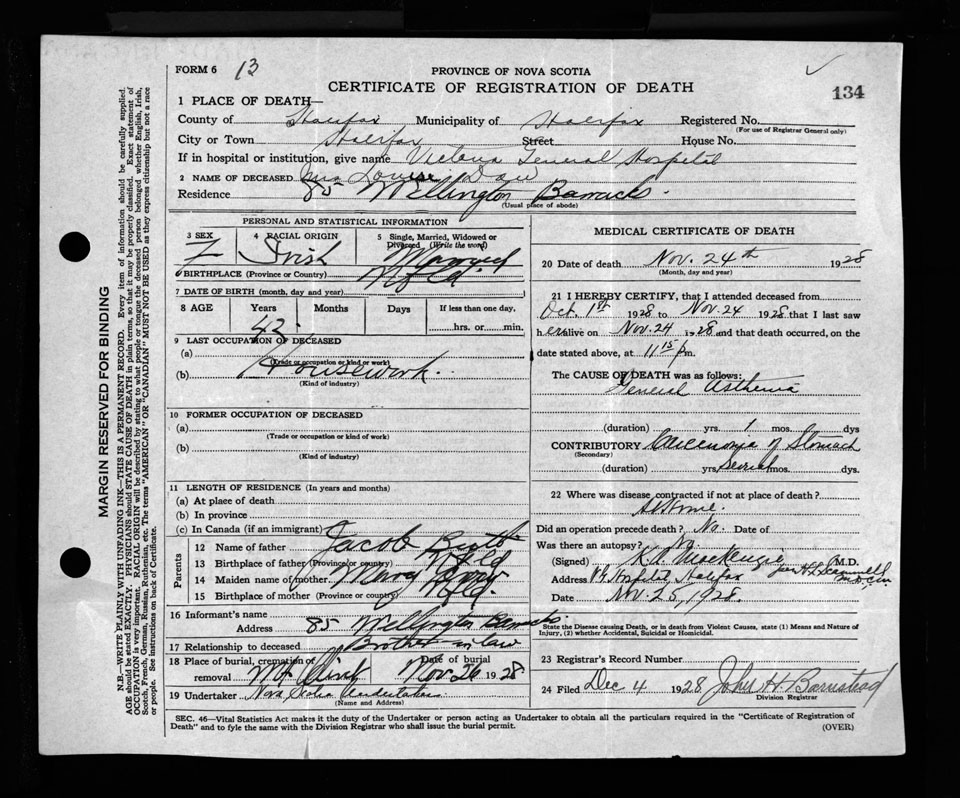 FORM 6 13
PROVINCE OF NOVA SCOTIA
CERTIFICATE OF REGISTRATION OF DEATH
134
1 PLACE OF DEATH—
County of Halifax Municipality of Halifax Registered No.
(For use of Registrar General only)
City or Town Halifax Street House No.
If in hospital or institution, give name Victoria General Hospital
2 NAME OF DECEASED Louise Daw
Residence 85 Wellington Barracks.
(Usual place of abode)
PERSONAL AND STATISTICAL INFORMATION
3 SEX 4 RACIAL ORIGIN 5 Single, Married, Widowed or Divorced (Write the word)
F Irish Married
6 BIRTHPLACE (Province or Country) Nfld
7 DATE OF BIRTH (month, day and year)
8 AGE Years Months Days If less than one day,
42 hrs. or min.
9 LAST OCCUPATION OF DECEASED
(a)
(Trade or occupation or kind of work)
(b) Housework.
(Kind of industry)
10 FORMER OCCUPATION OF DECEASED
(a)
(Trade or occupation or kind of work)
(b)
(Kind of industry)
11 LENGTH OF RESIDENCE (In years and months)
(a) At place of death
(b) In province
(c) In Canada (if an immigrant)
Parents
12 Name of father Jacob
13 Birthplace of father (Province or country) Nfld
14 Maiden name of mother Mary
15 Birthplace of mother (Province or country) Nfld.
16 Informant's name
Address 85 Wellington Barracks.
17 Relationship to deceased Brother-in-law
18 Place of burial, cremation or removal Mt Olivet Date of burial Nov 26 1928
19 Undertaker Nova Scotia Undertakers
(Name and Address)
MEDICAL CERTIFICATE OF DEATH
20 Date of death Nov. 24th 1928
(Month, day and year)
21 I HEREBY CERTIFY, that I attended deceased from
Oct. 1st 1928 to Nov. 24 1928 that I last saw
her alive on Nov. 24 1928 and that death occurred, on
date stated above, at 11 15 pm.
The CAUSE OF DEATH was as follows:
General Asthenia
(duration) yrs. 1 mos. dys
CONTRIBUTORY Carcinoma of Stomach
(Secondary)
(duration) yrs. Several mos. dys.
22 Where was disease contracted if not at place of death?
At Home.
Did an operation precede death? No. Date of
Was there an autopsy? No
(Signed) MacKenzie M.D.
Address Hospital Halifax
Date Nov. 25, 1928.
State the Disease causing Death, or in death from Violent Causes, state (1) Means and Nature of Injury, (2) whether Accidental, Suicidal or Homicidal.
23 Registrar's Record Number
24 Filed Dec 4 1928 John H Barnstead
Division Registrar
SEC. 46—Vital Statistics Act makes it the duty of the Undertaker or person acting as Undertaker to obtain all the particulars required in the "Certificate of Registration of
Death" and to fyle the same with the Division Registrar who shall issue the burial permit.
(OVER)
MARGIN RESERVED FOR BINDING
N.B.—WRITE PLAINLY WITH UNFADING INK—THIS IS A PERMANENT RECORD. Every item of information should be carefully supplied.
AGE should be stated EXACTLY. PHYSICIANS should STATE CAUSE OF DEATH in plain terms, so that it may be properly classified. Exact statement of
OCCUPATION is very important. RACIAL ORIGIN will be described by stating to what people or tongue the deceased person belonged whether English, Irish,
Scotch, French, German, Russian, Ruthenian, etc. The terms "AMERICAN" OR "CANADIAN" MUST NOT BE USED as they express citizenship but not a race
or people. See instructions on back of Certificate.